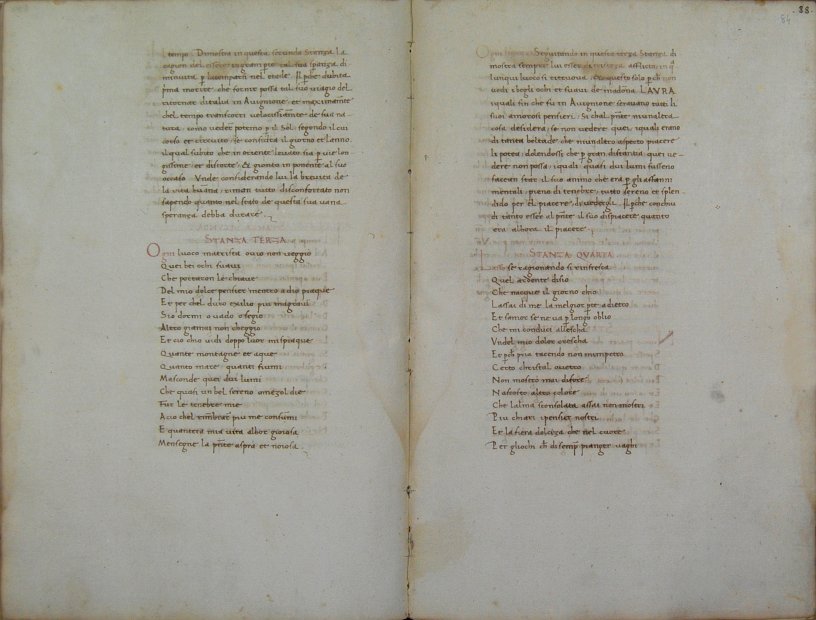 l tempo. Dimostra in questa seconda Stanza la
cagion del esser ingrampio tal sua speranza di
minuita p lo comparti nel etede. Il pche dubita
pma morire, che fornir possa tal suo viagio del
ritornar ditalia in Avignione et maximamente
chel tempo transcorri velocissimamte de sua na
tura, como veder potemo p il Sol; segondo il cui
corso et circuito, se consuma il giorno et lanno
il qual subito che in oriente levato sia p vie lon
gissime et distorte, & gionto in ponente al suo
occaso. Unde considerando lui la brevita de
la vita humana, riman tutto disconfortato non
sapendo quanto nel stato de questa sua vana
speranza debba durare.
STANZA TERZA
Ogni luoco matrista ovio non veggio
Quei bei ochi suavi
Che portaron le chiave
Del mio dolce pensier mentre a dio piaque
Et per chel duro exilio piu magravi
Sio dormi o vado o segio
Altro giamai non chieggio
Et cio chio vidi doppo luor mi spiaque
Quante montagne et aque
Quanto mare quanti fiumi
Masconde quei dui lumi
Che quasi un bel sereno amezol die
Fur le tenebre mie
Acio chel rimembrar piu me consumi
E quanto era mia vita alhor gioiosa
Mensegne la pnte aspra et noiosa.
88
84
Seguitando in questa terza Stanza di
mostra sempre lui esser di tristeza afflitto in q
lunqui luoco si ritruova, & questo solo p ch non
vede i begli ochi et suavi de madona LAVRA
i quali fin che fu in Avignione servano tutti li
suoi amorosi pensieri. Si chal pnte niunaltra
cosa desidera, se non vedere quei, i quali erano
di tanta beltade che niunaltro aspetto piacere
li potea; dolendosi che p gran distantia, quei ve-
dere non possa, i quali quasi dui lumi fusseno
faccan star il suo animo che era p gli affanni
mentali, pieno di tenebre, tutto sereno et splen
dido per il piacere, di vedergli. Il pche conchiu
di tanto esser al pnte il suo dispiacere quanto
era alhora il piacere.
STANZA QVARTA
se ragionando si rinfresca
Quel ardente disio
Che nacque il giorno chio
Lassai di me la melgior pte a dietro
Et samor se ne va p longo oblio
Che mi conduci allescha
Undel mio dolor crescha
Et pch pria tacendo non mimpetro
Certo christal o vetro
Non mostro mai difore
Nascosto altro colore
Che lalma sconsolata assai non mostri
Piu chiari i pensier nostri
Et la fiera dolceza che nel cuore
Per gliochi ch di semp pianger vaghi